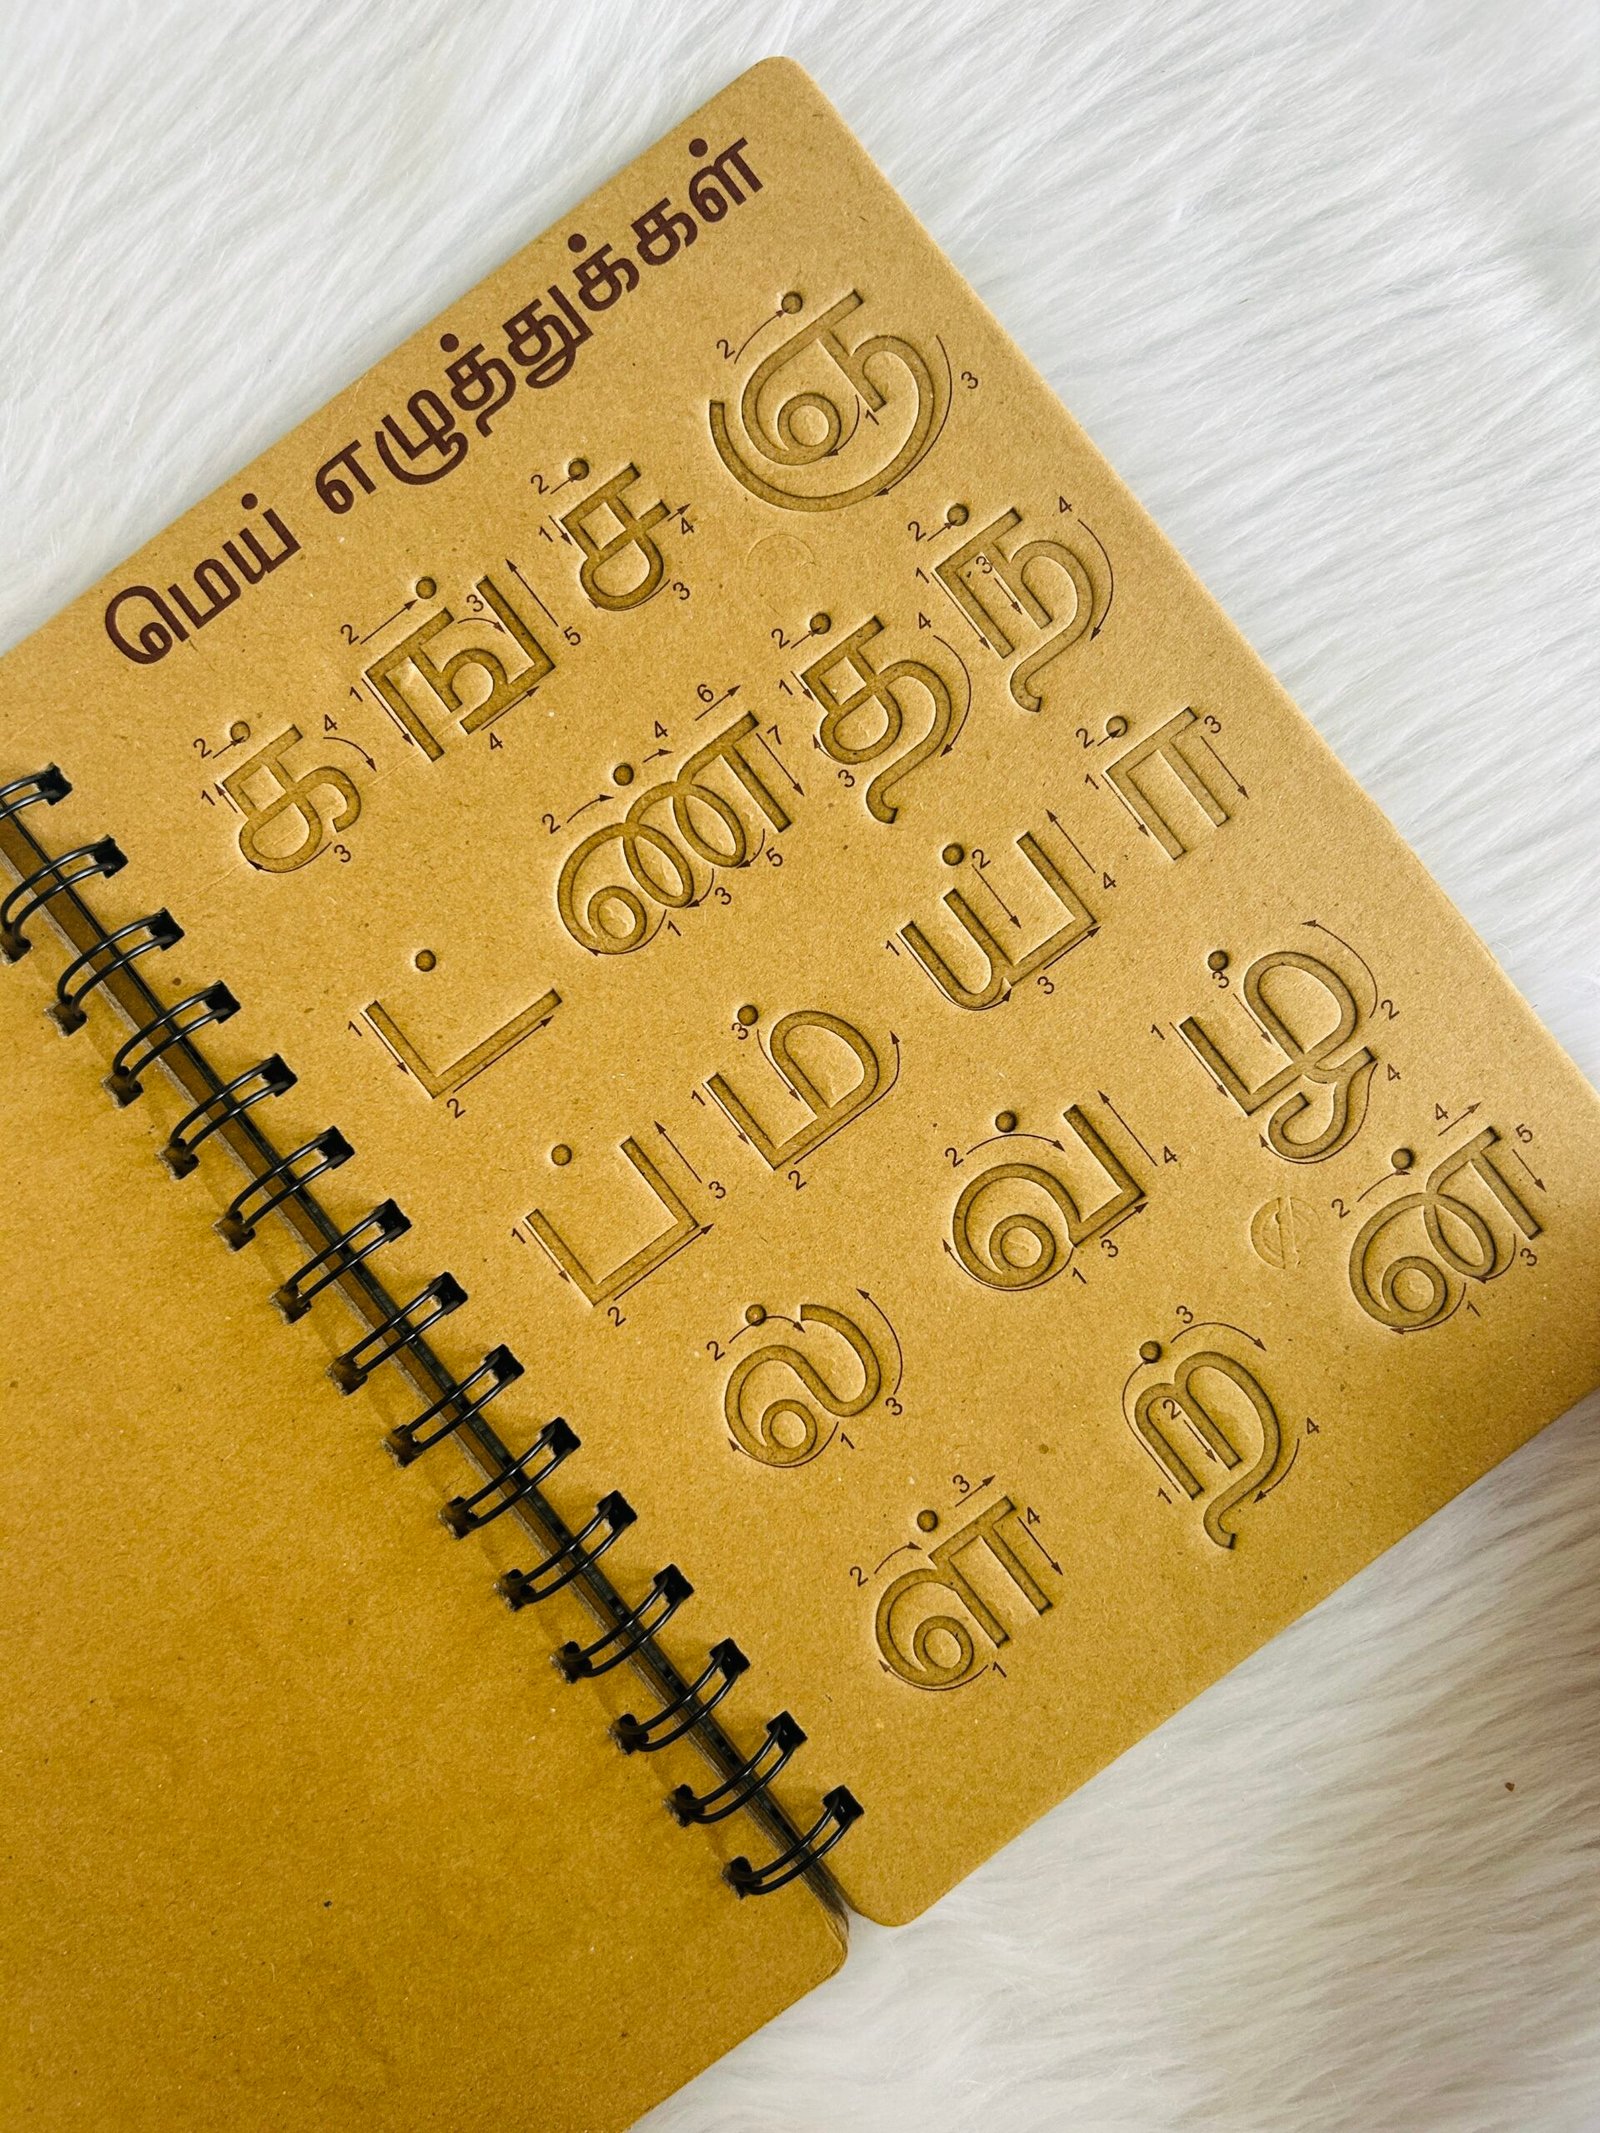 மெய் எழுத்துக்கள்
க் ங் ச் ஞ்
ட் ண் த் ந்
ப் ம் ய் ர்
ல் வ் ழ்
ள் ற் ன்